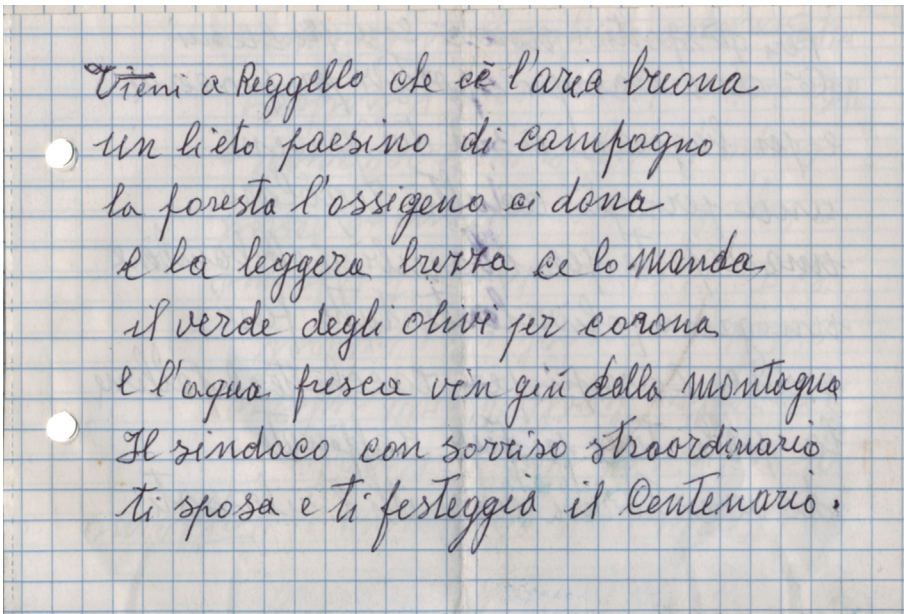 Vieni a Reggello che cè l'aria buona
un lieto paesino di campagna
la foresta l'ossigeno ci dona
e la leggera brezza ce lo manda
il verde degli olivi per corona
e l'aqua fresca vin giù dalla montagna
Il sindaco con sorriso straordinario
ti sposa e ti festeggia il Centenario.